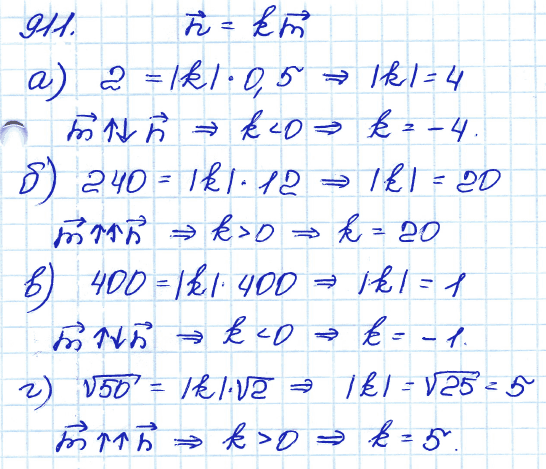 911. n⃗ = k m⃗
а) 2 = |k| · 0,5 ⇒ |k| = 4
m⃗ ↑↓ n⃗ ⇒ k < 0 ⇒ k = -4.
б) 240 = |k| · 12 ⇒ |k| = 20
m⃗ ↑↑ n⃗ ⇒ k > 0 ⇒ k = 20
в) 400 = |k| · 400 ⇒ |k| = 1
m⃗ ↑↓ n⃗ ⇒ k < 0 ⇒ k = -1.
г) √50 = |k| · √2 ⇒ |k| = √25 = 5
m⃗ ↑↑ n⃗ ⇒ k > 0 ⇒ k = 5.